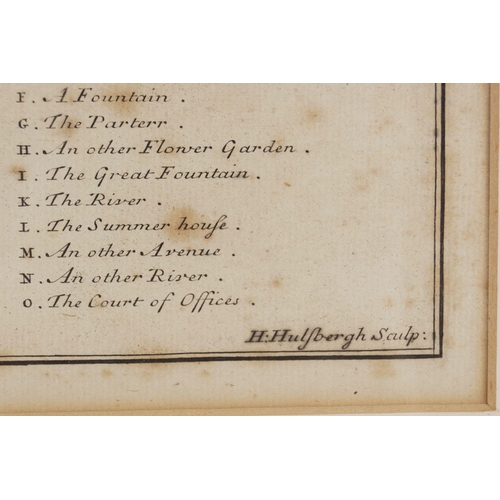 F. A Fountain.
G. The Parterr.
H. An other Flower Garden.
I. The Great Fountain.
K. The River.
L. The Summer houſe.
M. An other Avenue.
N. An other River.
O. The Court of Offices.
H: Hulſbergh Sculp: